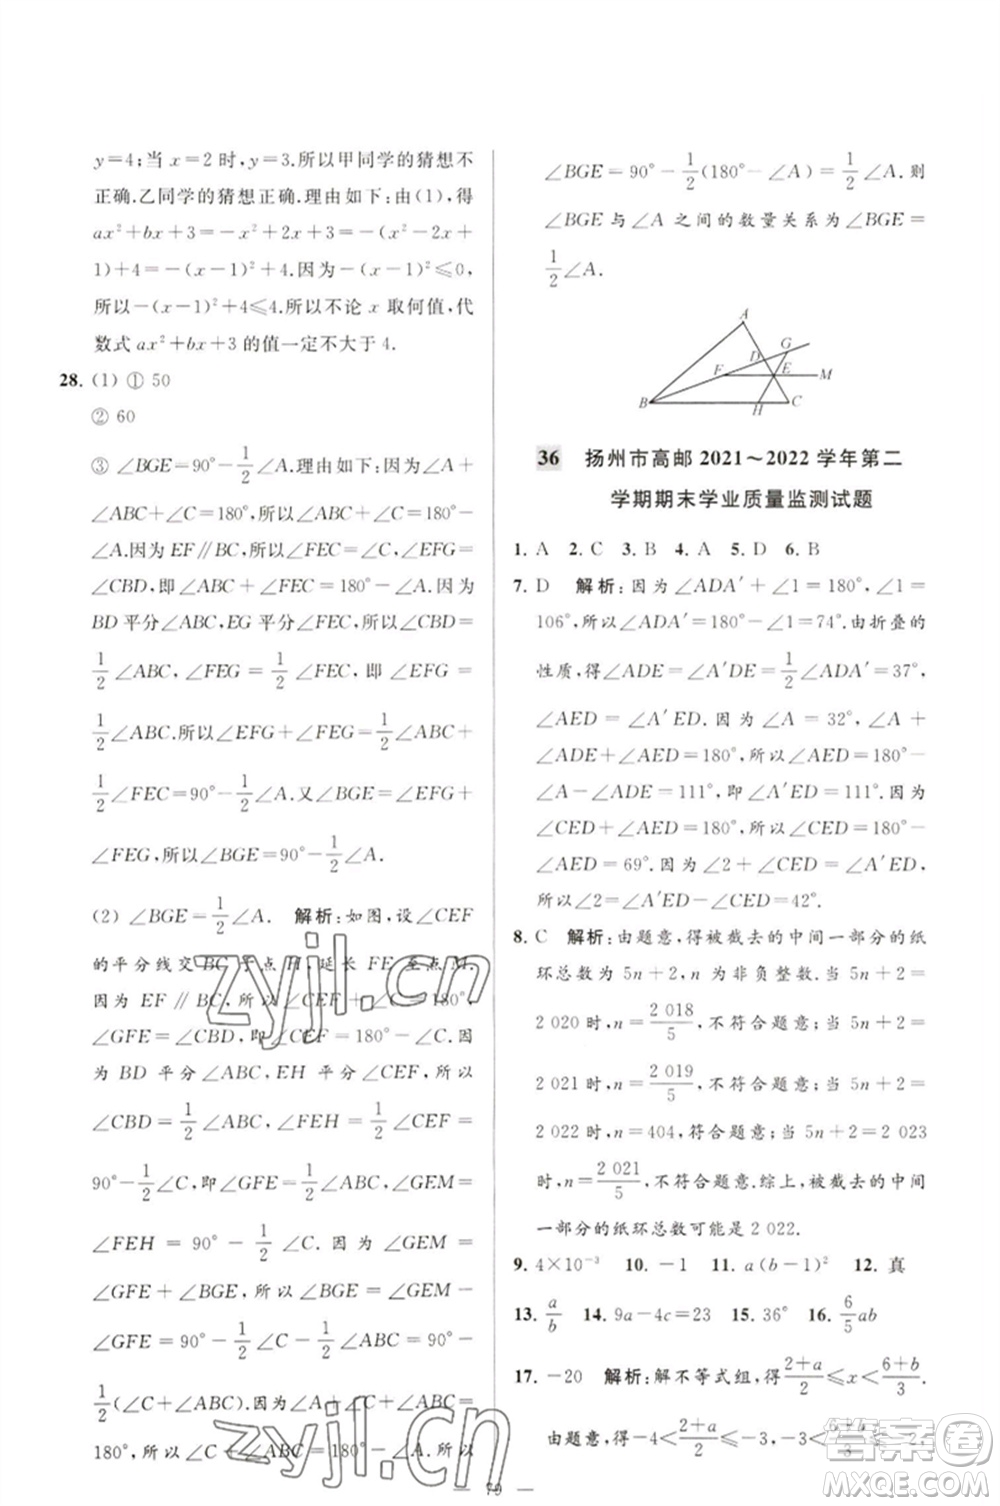 y=4;当 x=2 时,y=3.所以甲同学的猜想不
正确.乙同学的猜想正确.理由如下:由(1),得
ax²+bx+3=-x²+2x+3=-(x²-2x+
1)+4=-(x-1)²+4.因为-(x-1)²≤0,
所以-(x-1)²+4≤4.所以不论 x 取何值,代
数式 ax²+bx+3 的值一定不大于 4.
28. (1) ① 50
② 60
③ ∠BGE=90°-1/2∠A.理由如下:因为∠A+
∠ABC+∠C=180°,所以∠ABC+∠C=180°-
∠A.因为 EF∥BC,所以∠FEC=∠C,∠EFG=
∠CBD,即∠AEF=∠C=180°-∠FEC.因为
BD 平分∠ABC,EG 平分∠FEC,所以∠CBD=
1/2∠ABC,∠FEG=1/2∠FEC,即∠EFG=
1/2∠ABC.所以∠EFG+∠FEG=1/2∠ABC+
1/2∠FEC=90°-1/2∠A.又∠BGE=∠EFG+
∠FEG,所以∠BGE=90°-1/2∠A.
(2) ∠BGE=1/2∠A. 解析:如图,设∠CEF
的平分线交 BC 于点 H,延长 FE 至点 M.
因为 EF∥BC,所以∠CEF+∠C=180°,
∠GFE=∠CBD,即∠CEF=180°-∠C.因
为 BD 平分∠ABC,EH 平分∠CEF,所以
∠CBD=1/2∠ABC,∠FEH=1/2∠CEF=
90°-1/2∠C,即∠GFE=1/2∠ABC,
∠FEH=90°-1/2∠C.因为∠GEM=
∠GFE+∠BGE,所以∠BGE=∠GEM-
∠GFE=90°-1/2∠C-1/2∠ABC=90°-
1/2(∠C+∠ABC).因为∠A+∠ABC+∠C=
180°,所以∠C+∠ABC=180°-∠A.所以
∠BGE=90°-1/2(180°-∠A)=1/2∠A.则
∠BGE 与∠A 之间的数量关系为∠BGE=
1/2∠A.
A
G
D
F
E
M
B
H
C
36 扬州市高邮 2021~2022 学年第二
学期期末学业质量监测试题
1. A 2. C 3. B 4. A 5. D 6. B
7. D 解析:因为∠ADA′+∠1=180°,∠1=
106°,所以∠ADA′=180°-∠1=74°.由折叠的
性质,得∠ADE=∠A′DE=1/2∠ADA′=37°,
∠AED=∠A′ED.因为∠A=32°,∠A+
∠ADE+∠AED=180°,所以∠AED=180°-
∠A-∠ADE=111°,即∠A′ED=111°.因为
∠CED+∠AED=180°,所以∠CED=180°-
∠AED=69°.因为∠2+∠CED=∠A′ED,
所以∠2=∠A′ED-∠CED=42°.
8. C 解析:由题意,得被截去的中间一部分的纸
环总数为 5n+2,n 为非负整数.当 5n+2=
2 020 时,n=2 018/5,不符合题意;当 5n+2=
2 021 时,n=2 019/5,不符合题意;当 5n+2=
2 022 时,n=404,符合题意;当 5n+2=2 023
时,n=2 021/5,不符合题意.综上,被截去的中间
一部分的纸环总数可能是 2 022.
9. 4×10⁻³ 10. -1 11. a(b-1)² 12. 真
13. a/b 14. 9a-4c=23 15. 36° 16. 6/5ab
17. -20 解析:解不等式组,得(2+a)/2≤x<(6+b)/3.
由题意,得-4<(2+a)/2≤-3,-3<(6+b)/3≤
zyjl.cn
zyjl.cn
答案圈
MXQE.COM
— 79 —